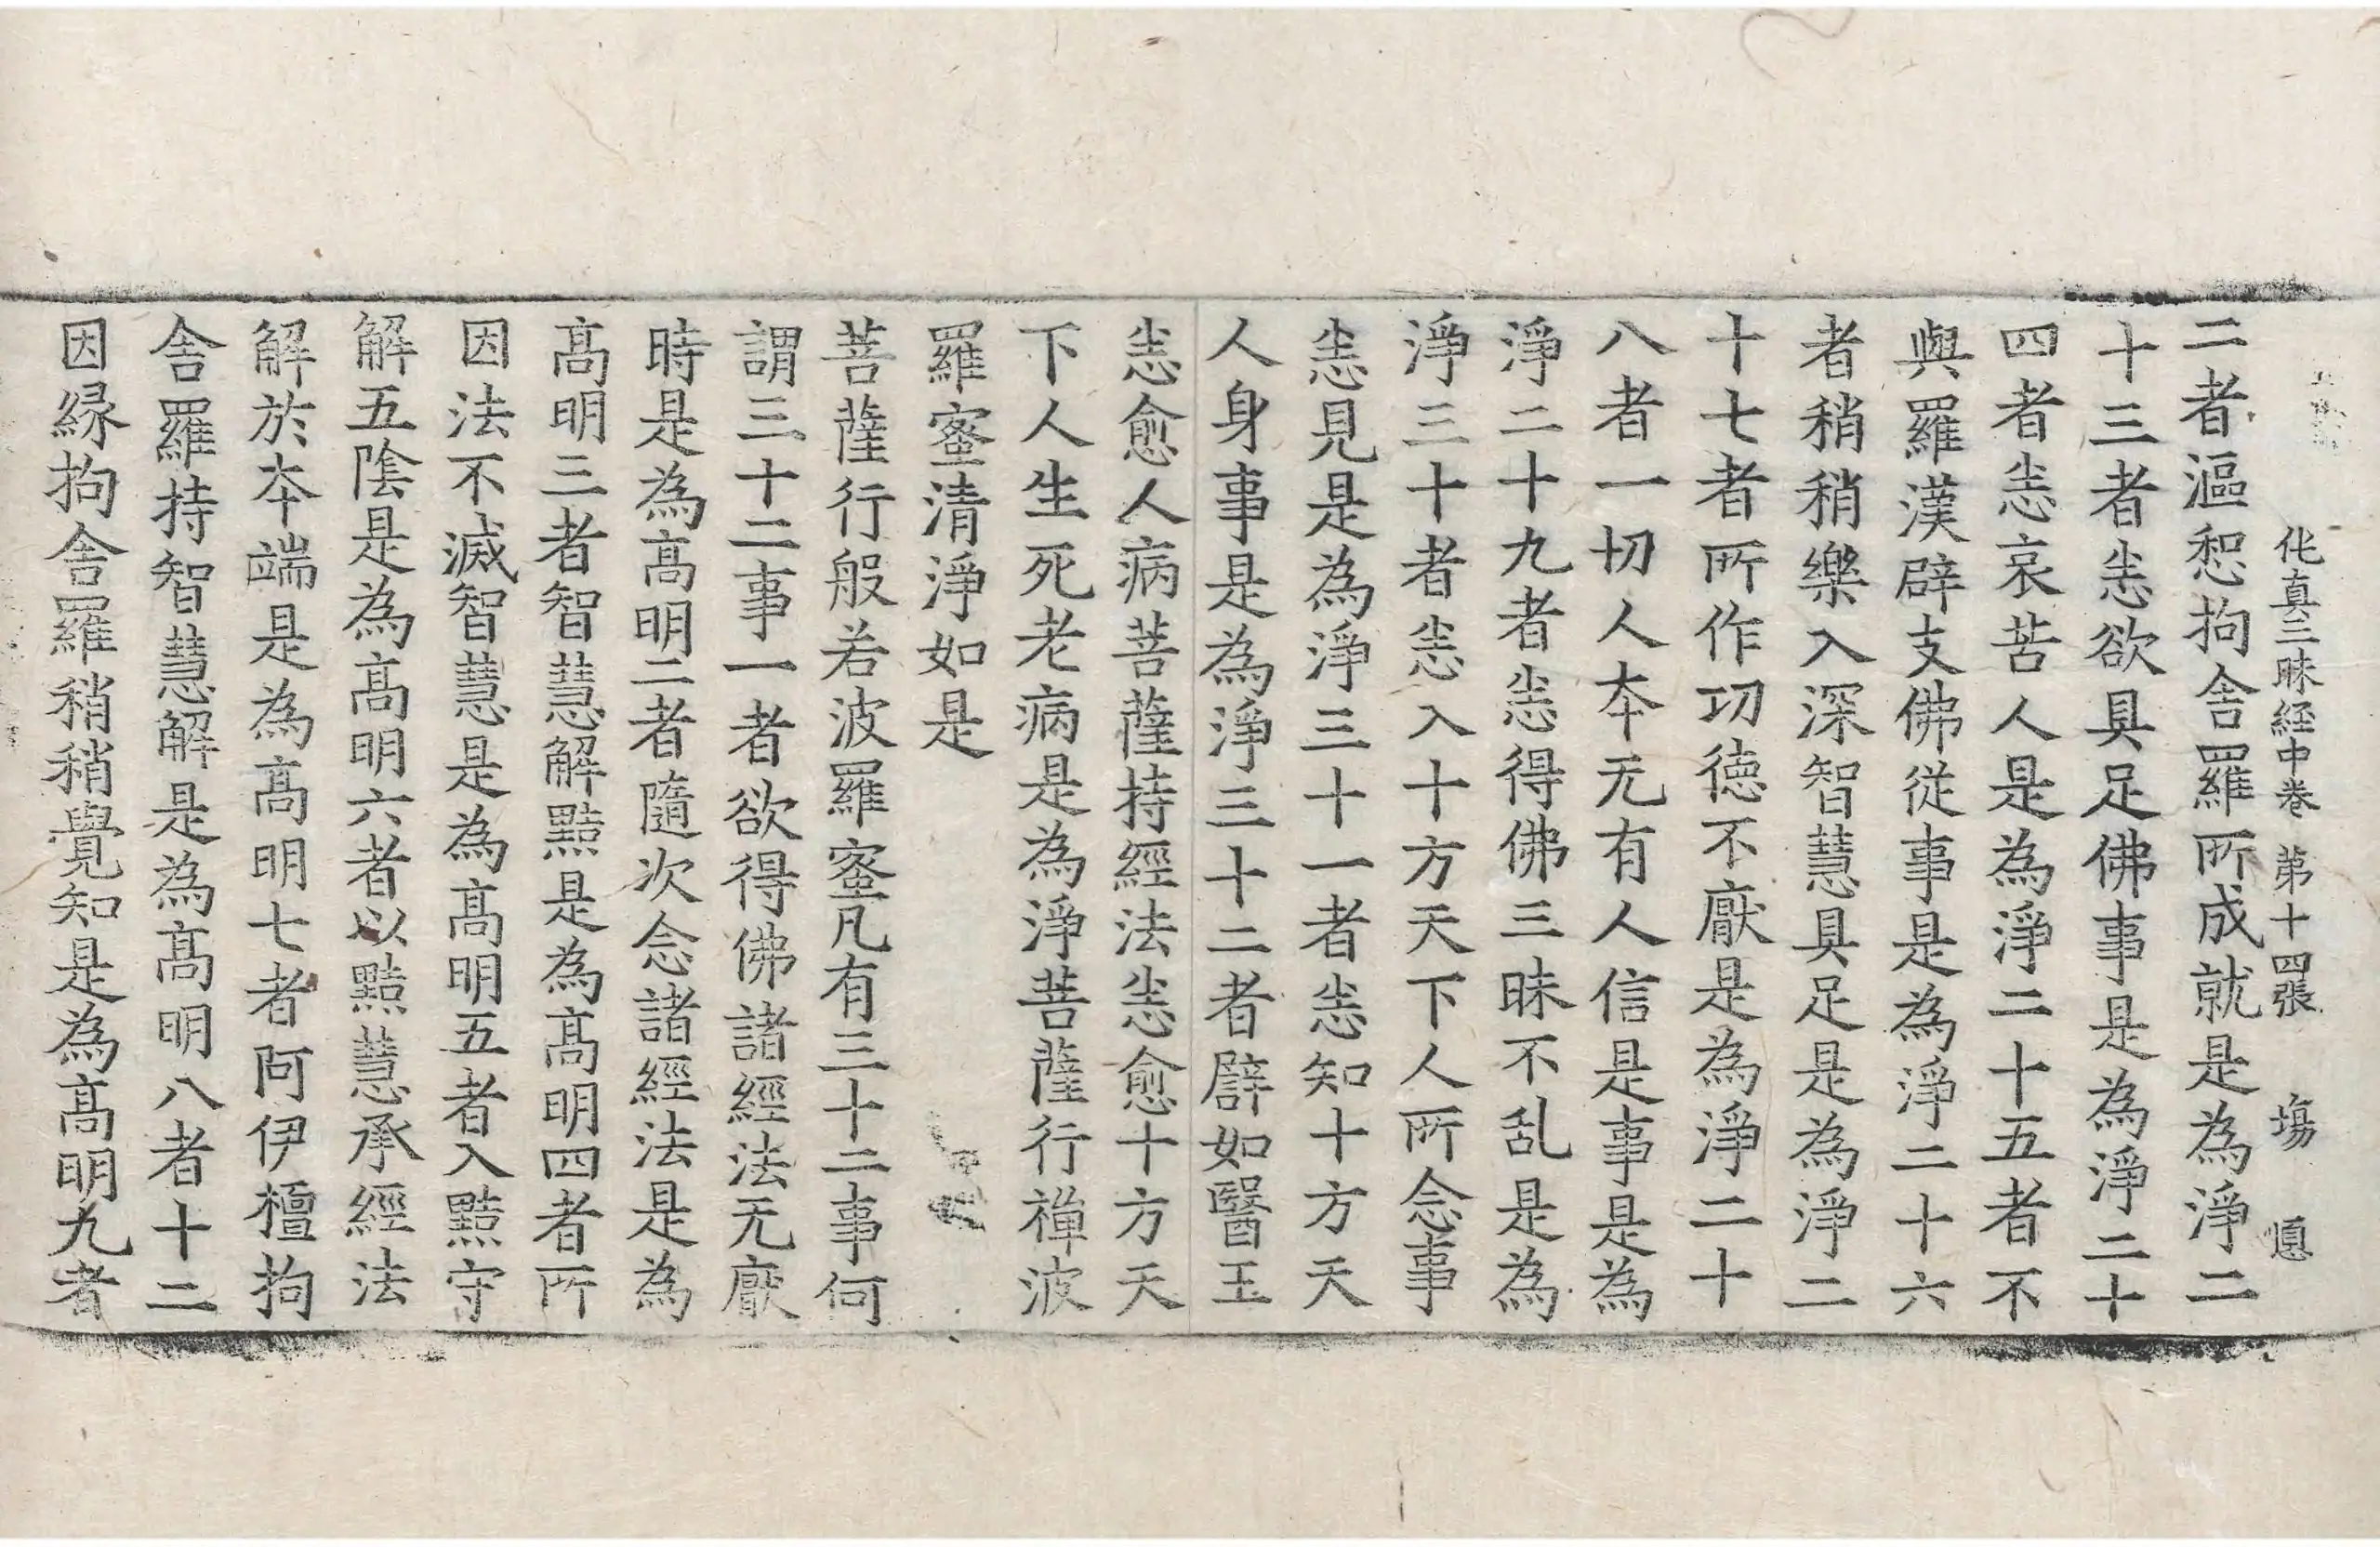 伅真三昧経中巻 苐十四張 塲 㥯
二者漚惒拘舍羅所成就是為淨二
十三者㤅欲具足佛事是為淨二十
四者㤅哀苦人是為淨二十五者不
與羅漢辟支佛従事是為淨二十六
者稍稍樂入深智慧具足是為淨二
十七者所作功徳不厭是為淨二十
八者一切人本无有人信是事是為
淨二十九者㤅得佛三昧不乱是為
淨三十者㤅入十方天下人所念事
㤅見是為淨三十一者㤅知十方天
人身事是為淨三十二者譬如醫王
㤅愈人病菩薩持經法㤅愈十方天
下人生死老病是為淨菩薩行禪波
羅蜜清淨如是
菩薩行般若波羅蜜凡有三十二事何
謂三十二事一者欲得佛諸經法无厭
時是為髙明二者隨次念諸經法是為
髙明三者智慧解黠是為髙明四者所
因法不滅智慧是為髙明五者入黠守
解五陰是為髙明六者以黠慧承經法
解於本端是為髙明七者阿伊檀拘
舍羅持智慧解是為髙明八者十二
因縁拘舍羅稍稍覺知是為髙明九者